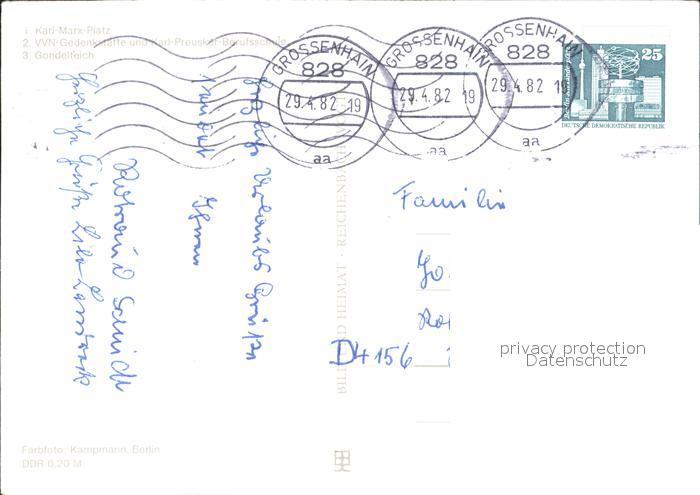 1. Karl-Marx-Platz
2. VVN-Gedenkstätte und Karl-Preusker-Berufsschule
3. Gondelteich
GROSSENHAIN
828
29.4.82 19
aa
GROSSENHAIN
828
29.4.82 19
aa
GROSSENHAIN
828
29.4.82 19
aa
25
DEUTSCHE DEMOKRATISCHE REPUBLIK
Herzliche Urlaubs Grüße
sendet Ihnen
Schmidt
Herzliche Grüße
BILD UND HEIMAT · REICHENBACH
Familie
D4156
privacy protection
Datenschutz
Farbfoto: Kampmann, Berlin
DDR 0,20 M